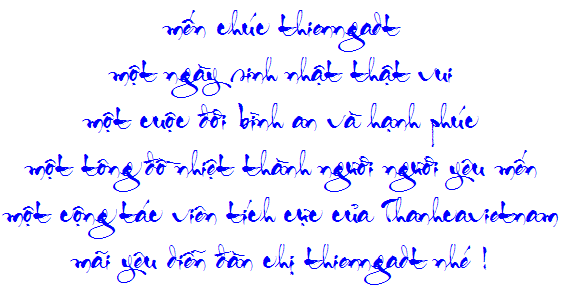 mến chúc thienngadt
một ngày sinh nhật thật vui
một cuộc đời bình an và hạnh phúc
một tông đồ nhiệt thành người người yêu mến
một cộng tác viên tích cực của Thanhcavietnam
mãi yêu diễn đàn chị thienngadt nhé !